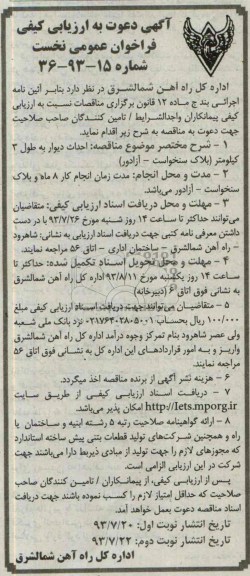 آگهی دعوت به ارزیابی کیفی
فراخوان عمومی نخست
شماره ۱۵-۹۳-۳۶
اداره کل راه آهن شمالشرق در نظر دارد بنابر آئین نامه
اجرائی بند ج ماده ۱۲ قانون برگزاری مناقصات نسبت به ارزیابی
کیفی پیمانکاران واجدالشرایط / تامین کنندگان صاحب صلاحیت
جهت دعوت به مناقصه به شرح زیر اقدام نماید.
۱ - شرح مختصر موضوع مناقصه: احداث دیوار به طول ۳
کیلومتر (بلاک سنخواست - آزادور)
۲ - مدت و محل انجام: مدت زمان انجام کار ۸ ماه و بلاک
سنخواست - آزادور می‌باشد.
۳ - مهلت و محل دریافت اسناد ارزیابی کیفی: متقاضیان
می‌توانند حداکثر تا ساعت ۱۴ روز شنبه مورخ ۹۳/۷/۲۶ با در دست
داشتن معرفی نامه کتبی جهت دریافت اسناد ارزیابی به نشانی: شاهرود
- راه آهن شمالشرق - ساختمان اداری - اتاق ۵۶ مراجعه نمایند.
۴ - مهلت و محل تحویل اسناد تکمیل شده: حداکثر تا
ساعت ۱۴ روز یکشنبه مورخ ۹۳/۸/۱۱ اداره کل راه آهن شمالشرق
به نشانی فوق اتاق ۶ (دبیرخانه)
۵ - متقاضیان می‌توانند جهت دریافت اسناد ارزیابی کیفی مبلغ
۱۰۰/۰۰۰ ریال بحساب ۲۱۷۶۴۰۲۸۰۵۰۰۱ نزد بانک ملی شعبه
ولی عصر شاهرود بنام تمرکز وجوه درآمد اداره کل راه آهن شمالشرق
واریز و به امور قراردادهای این اداره کل به نشانی فوق اتاق ۵۶
مراجعه نمایند.
۶ - هزینه نشر آگهی از برنده مناقصه اخذ میگردد.
۷ - دریافت اسناد ارزیابی کیفی از طریق سایت
http://Iets.mporg.ir امکان پذیر می‌باشد.
۸ - ارائه گواهینامه صلاحیت رتبه ۵ رشته ابنیه و ساختمان یا
راه و همچنین شرکت‌های تولید قطعات بتنی پیش ساخته استاندارد
که مجوزهای لازم را جهت تولید از مبادی ذیربط دارا می‌باشند جهت
شرکت در این ارزیابی الزامی است.
پس از ارزیابی کیفی، از پیمانکاران / تامین کنندگان صاحب
صلاحیت که حداقل امتیاز لازم را کسب نموده باشند جهت دریافت
اسناد مناقصه دعوت بعمل خواهد آمد.
تاریخ انتشار نوبت اول: ۹۳/۷/۲۰
تاریخ انتشار نوبت دوم: ۹۳/۷/۲۲
اداره کل راه آهن شمالشرق